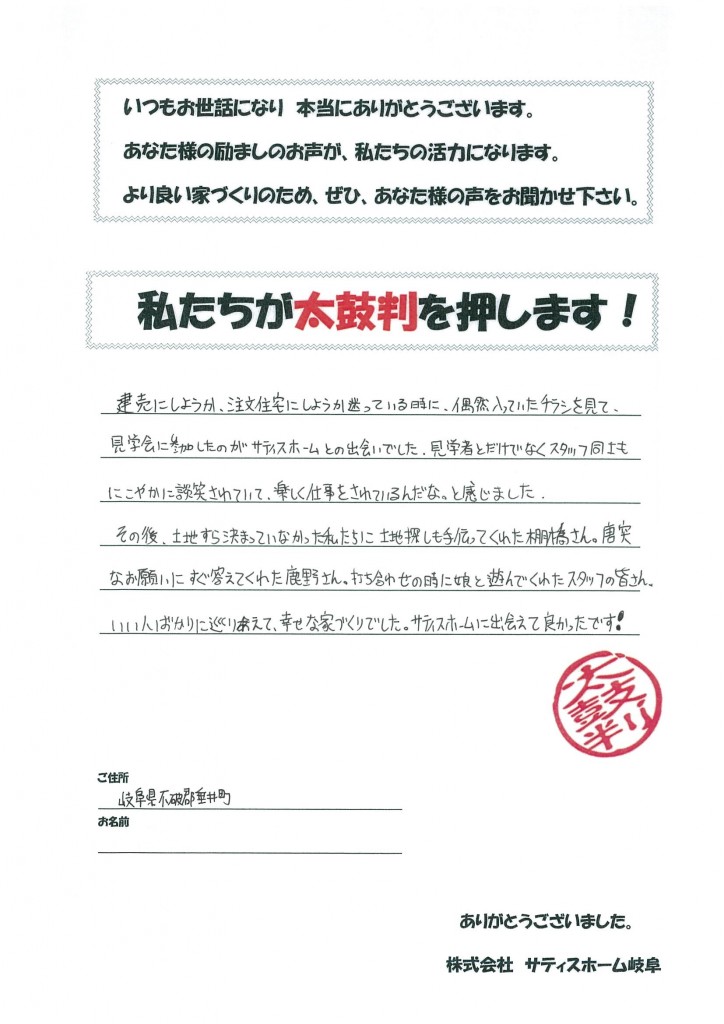 いつもお世話になり 本当にありがとうございます。
あなた様の励ましのお声が、私たちの活力になります。
より良い家づくりのため、ぜひ、あなた様の声をお聞かせ下さい。
私たちが太鼓判を押します！
建売にしようか、注文住宅にしようか迷っている時に、偶然入っていたチラシを見て、
見学会に参加したのがサティスホームとの出会いでした。見学者とだけでなくスタッフ同士も
にこやかに談笑されていて、楽しく仕事をされているんだな。と感じました。
その後、土地すら決まっていなかった私たちに土地探しも手伝ってくれた棚橋さん。唐突
なお願いにすぐ答えてくれた鹿野さん。打ち合わせの時に娘と遊んでくれたスタッフの皆さん。
いい人ばかりに巡りあえて、幸せな家づくりでした。サティスホームに出会えて良かったです!
太鼓判
ご住所
岐阜県不破郡垂井町
お名前
ありがとうございました。
株式会社 サティスホーム岐阜